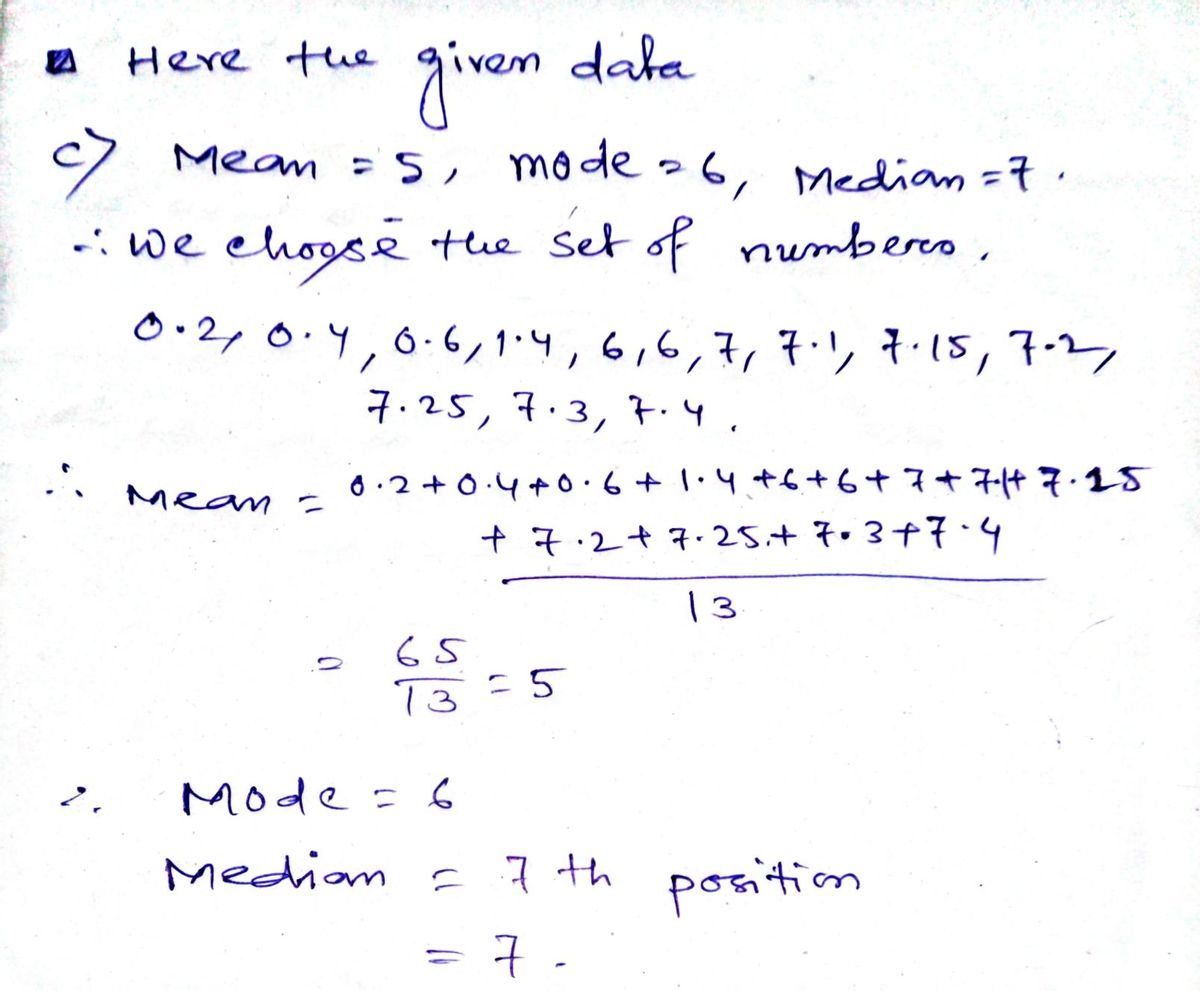 Here the given data
c) Mean = 5, mode = 6, Median = 7.
∴ We choose the set of numbers.
0.2, 0.4, 0.6, 1.4, 6, 6, 7, 7.1, 7.15, 7.2,
7.25, 7.3, 7.4.
∴ Mean = 0.2+0.4+0.6+1.4+6+6+7+7.1+7.15
+ 7.2+7.25+7.3+7.4
13
= 65/13 = 5
∴ Mode = 6
Median = 7 th position
= 7.